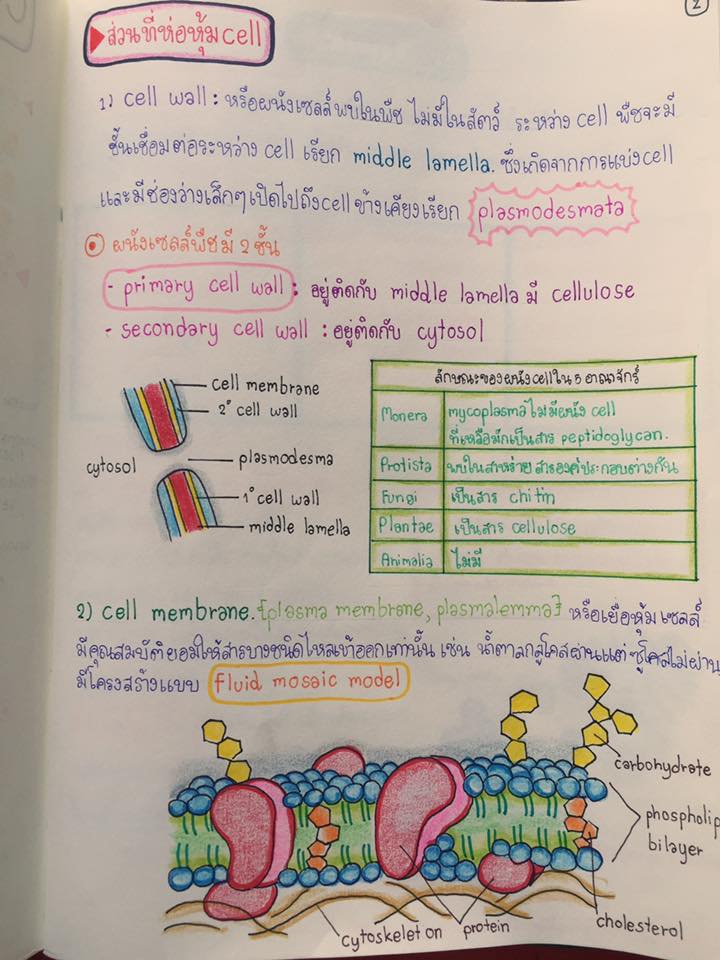 2
ส่วนที่ห่อหุ้ม cell
1) cell wall : หรือผนังเซลล์พบในพืช ไม่มีในสัตว์ ระหว่าง cell พืชจะมี
ชั้นเชื่อมต่อระหว่าง cell เรียก middle lamella. ซึ่งเกิดจากการแบ่งcell
และมีช่องว่างเล็กๆเปิดไปถึงcell ข้างเคียงเรียก plasmodesmata
ผนังเซลล์พืชมี 2 ชั้น
- primary cell wall : อยู่ติดกับ middle lamella มี cellulose
- secondary cell wall : อยู่ติดกับ cytosol
cell membrane
2° cell wall
cytosol
plasmodesma
1° cell wall
middle lamella
ลักษณะของผนังcellใน 5 อาณาจักร์
Monera mycoplasma ไม่มีผนัง cell
ที่เหลือมักเป็นสาร peptidoglycan.
Protista พบในสาหร่าย สารองค์ประกอบต่างกัน
Fungi เป็นสาร chitin
Plantae เป็นสาร cellulose
Animalia ไม่มี
2) cell membrane. {plasma membrane, plasmalemma} หรือเยื่อหุ้มเซลล์
มีคุณสมบัติยอมให้สารบางชนิดไหลเข้าออกเท่านั้น เช่น น้ำตาลกลูโคสผ่านแต่ซูโคสไม่ผ่าน
มีโครงสร้างแบบ fluid mosaic model
carbohydrate
phospholip
bilayer
cholesterol
protein
cytoskeleton